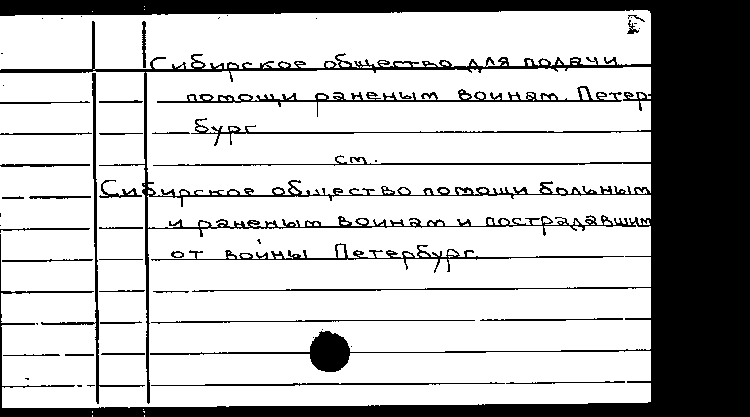 Сибирское общество для подачи
помощи раненым воинам. Петер-
бург
см.
Сибирское общество помощи больным
и раненым воинам и пострадавшим
от войны Петербург.